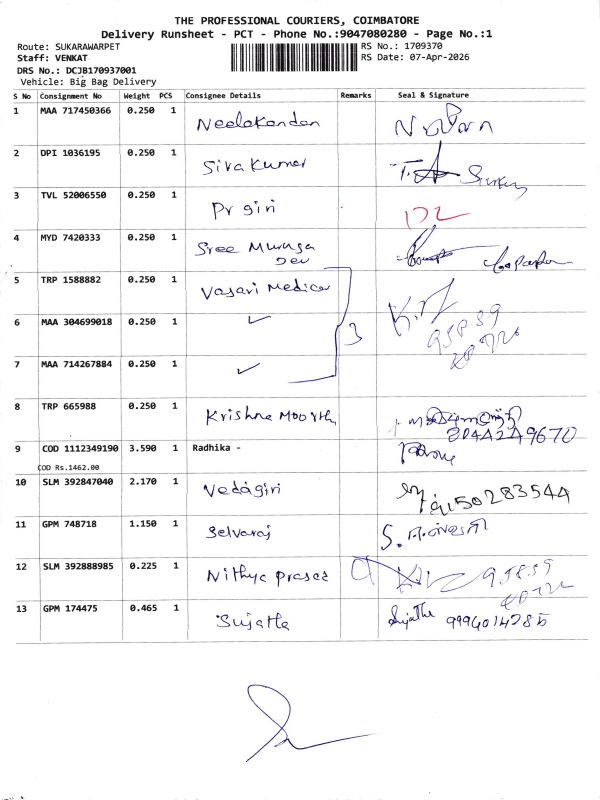 THE PROFESSIONAL COURIERS, COIMBATORE
Delivery Runsheet - PCT - Phone No.:9047080280 - Page No.:1
Route: SUKARAWARPET RS No.: 1709370
Staff: VENKAT RS Date: 07-Apr-2026
DRS No.: DCJB170937001
Vehicle: Big Bag Delivery
S No Consignment No Weight PCS Consignee Details Remarks Seal & Signature
1 MAA 717450366 0.250 1 Neelakandan
2 DPI 1036195 0.250 1 Siva Kumar
3 TVL 52006550 0.250 1 Pr giri
4 MYD 7420333 0.250 1 Sree Muruga
Dev
5 TRP 1588882 0.250 1 Vasavi Medical
6 MAA 304699018 0.250 1 ✓ 3
7 MAA 714267884 0.250 1 ✓
8 TRP 665988 0.250 1 Krishna Moorthy
9 COD 1112349190 3.590 1 Radhika -
COD Rs.1462.00
10 SLM 392847040 2.170 1 Vedagiri 9150283544
11 GPM 748718 1.150 1 Selvaraj
12 SLM 392888985 0.225 1 Nithya prasad
13 GPM 174475 0.465 1 Sujatha Sujatha 9994014285